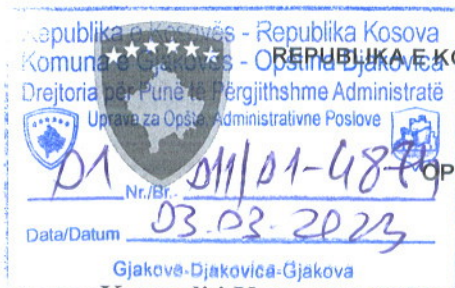 Republika e Kosovës - Republika Kosova
REPUBLIKA E KO
Komuna e Gjakovës - Opština Djakovica
Drejtoria për Punë të Përgjithshme Administratë
Uprava za Opšte Administrativne Poslove
01 Nr./Br. 011/01-48
OP
Data/Datum 03.03.2023
Gjakovë-Djakovica-Gjakova